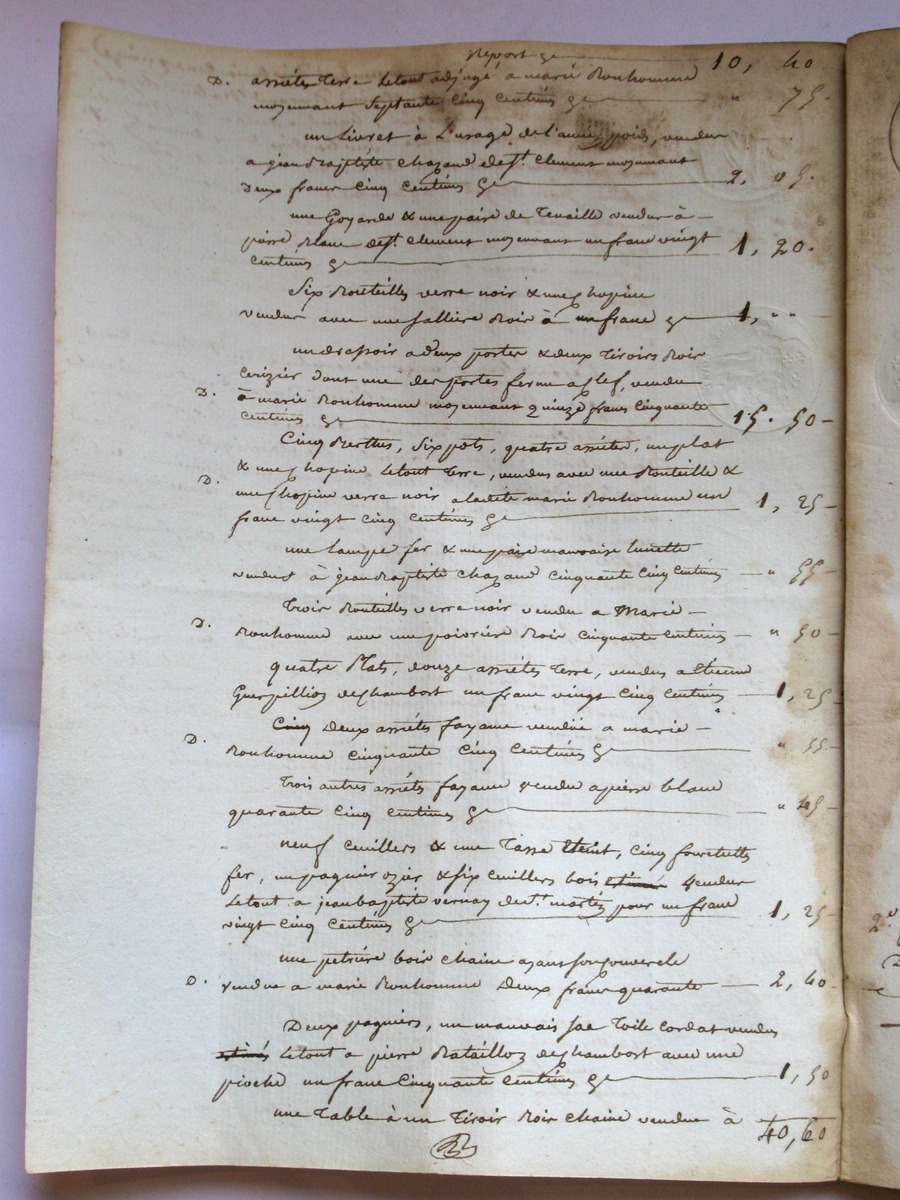 Report ge 10, 40
D. assiétes terre letout adjugé a marie Bonhomme
moyennant septante cinq centimes ge " 75.
un livret à l'usage de l'ancien poids, vendu
a jean Baptiste chazaud de st. clement moyennant
deux francs cinq centimes ge 2, 05.
une Goyarde & une paire de tenaille vendus à
pierre Blanc de st. clement moyennant un franc vingt
centimes ge 1, 20.
Six Bouteilles verre noir & une chopine
vendus avec une salliere Bois à un franc ge 1, " "
un dressoir a deux portes & deux tiroirs Bois
cerizier dont une des portes ferme a clef, vendu
D. à marie Bonhomme moyennant quinze francs cinquante
centimes ge 15. 50
Cinq Berthes, six pots, quatre assiétes, un plat
& une chopine letout terre, vendus avec une Bouteille &
D. une chopine verre noir a ladite marie Bonhomme un
franc vingt cinq centimes ge 1, 25
une lampe fer & une paire mauvaise lunette
vendus à jean Baptiste chazaud cinquante cinq centimes " 55
trois Bouteilles verre noir vendu a Marie
D. Bonhomme avec une poivriére Bois cinquante centimes " 50
quatre Plats, douze assiétes terre, vendus a Etienne
Guerpillion de chambort un franc vingt cinq centimes 1, 25
Cinq deux assiéts fayance vendue a marie
D. Bonhomme cinquante cinq centimes ge " 55
Trois autres assiéts fayance vendu a pierre blanc
quarante cinq centimes ge " 45
neuf cuillers & une tasse Eteint, cinq fourchettes
fer, un pagnier ozier & six cuillers bois estimés vendus
letout a jean baptiste vernay de st. martin pour un franc
vingt cinq centimes ge 1, 25
une petriére bois chaine ayant son couvercle
D. vendue a marie Bonhomme deux francs quarante 2, 40
Deux pagniers, un mauvais sac toile cordat vendus
estimés letout a pierre Batailloz de chambort avec une
pioche un franc cinquante centimes ge 1, 50
une table à un tiroir Bois chaine vendue à
40, 60